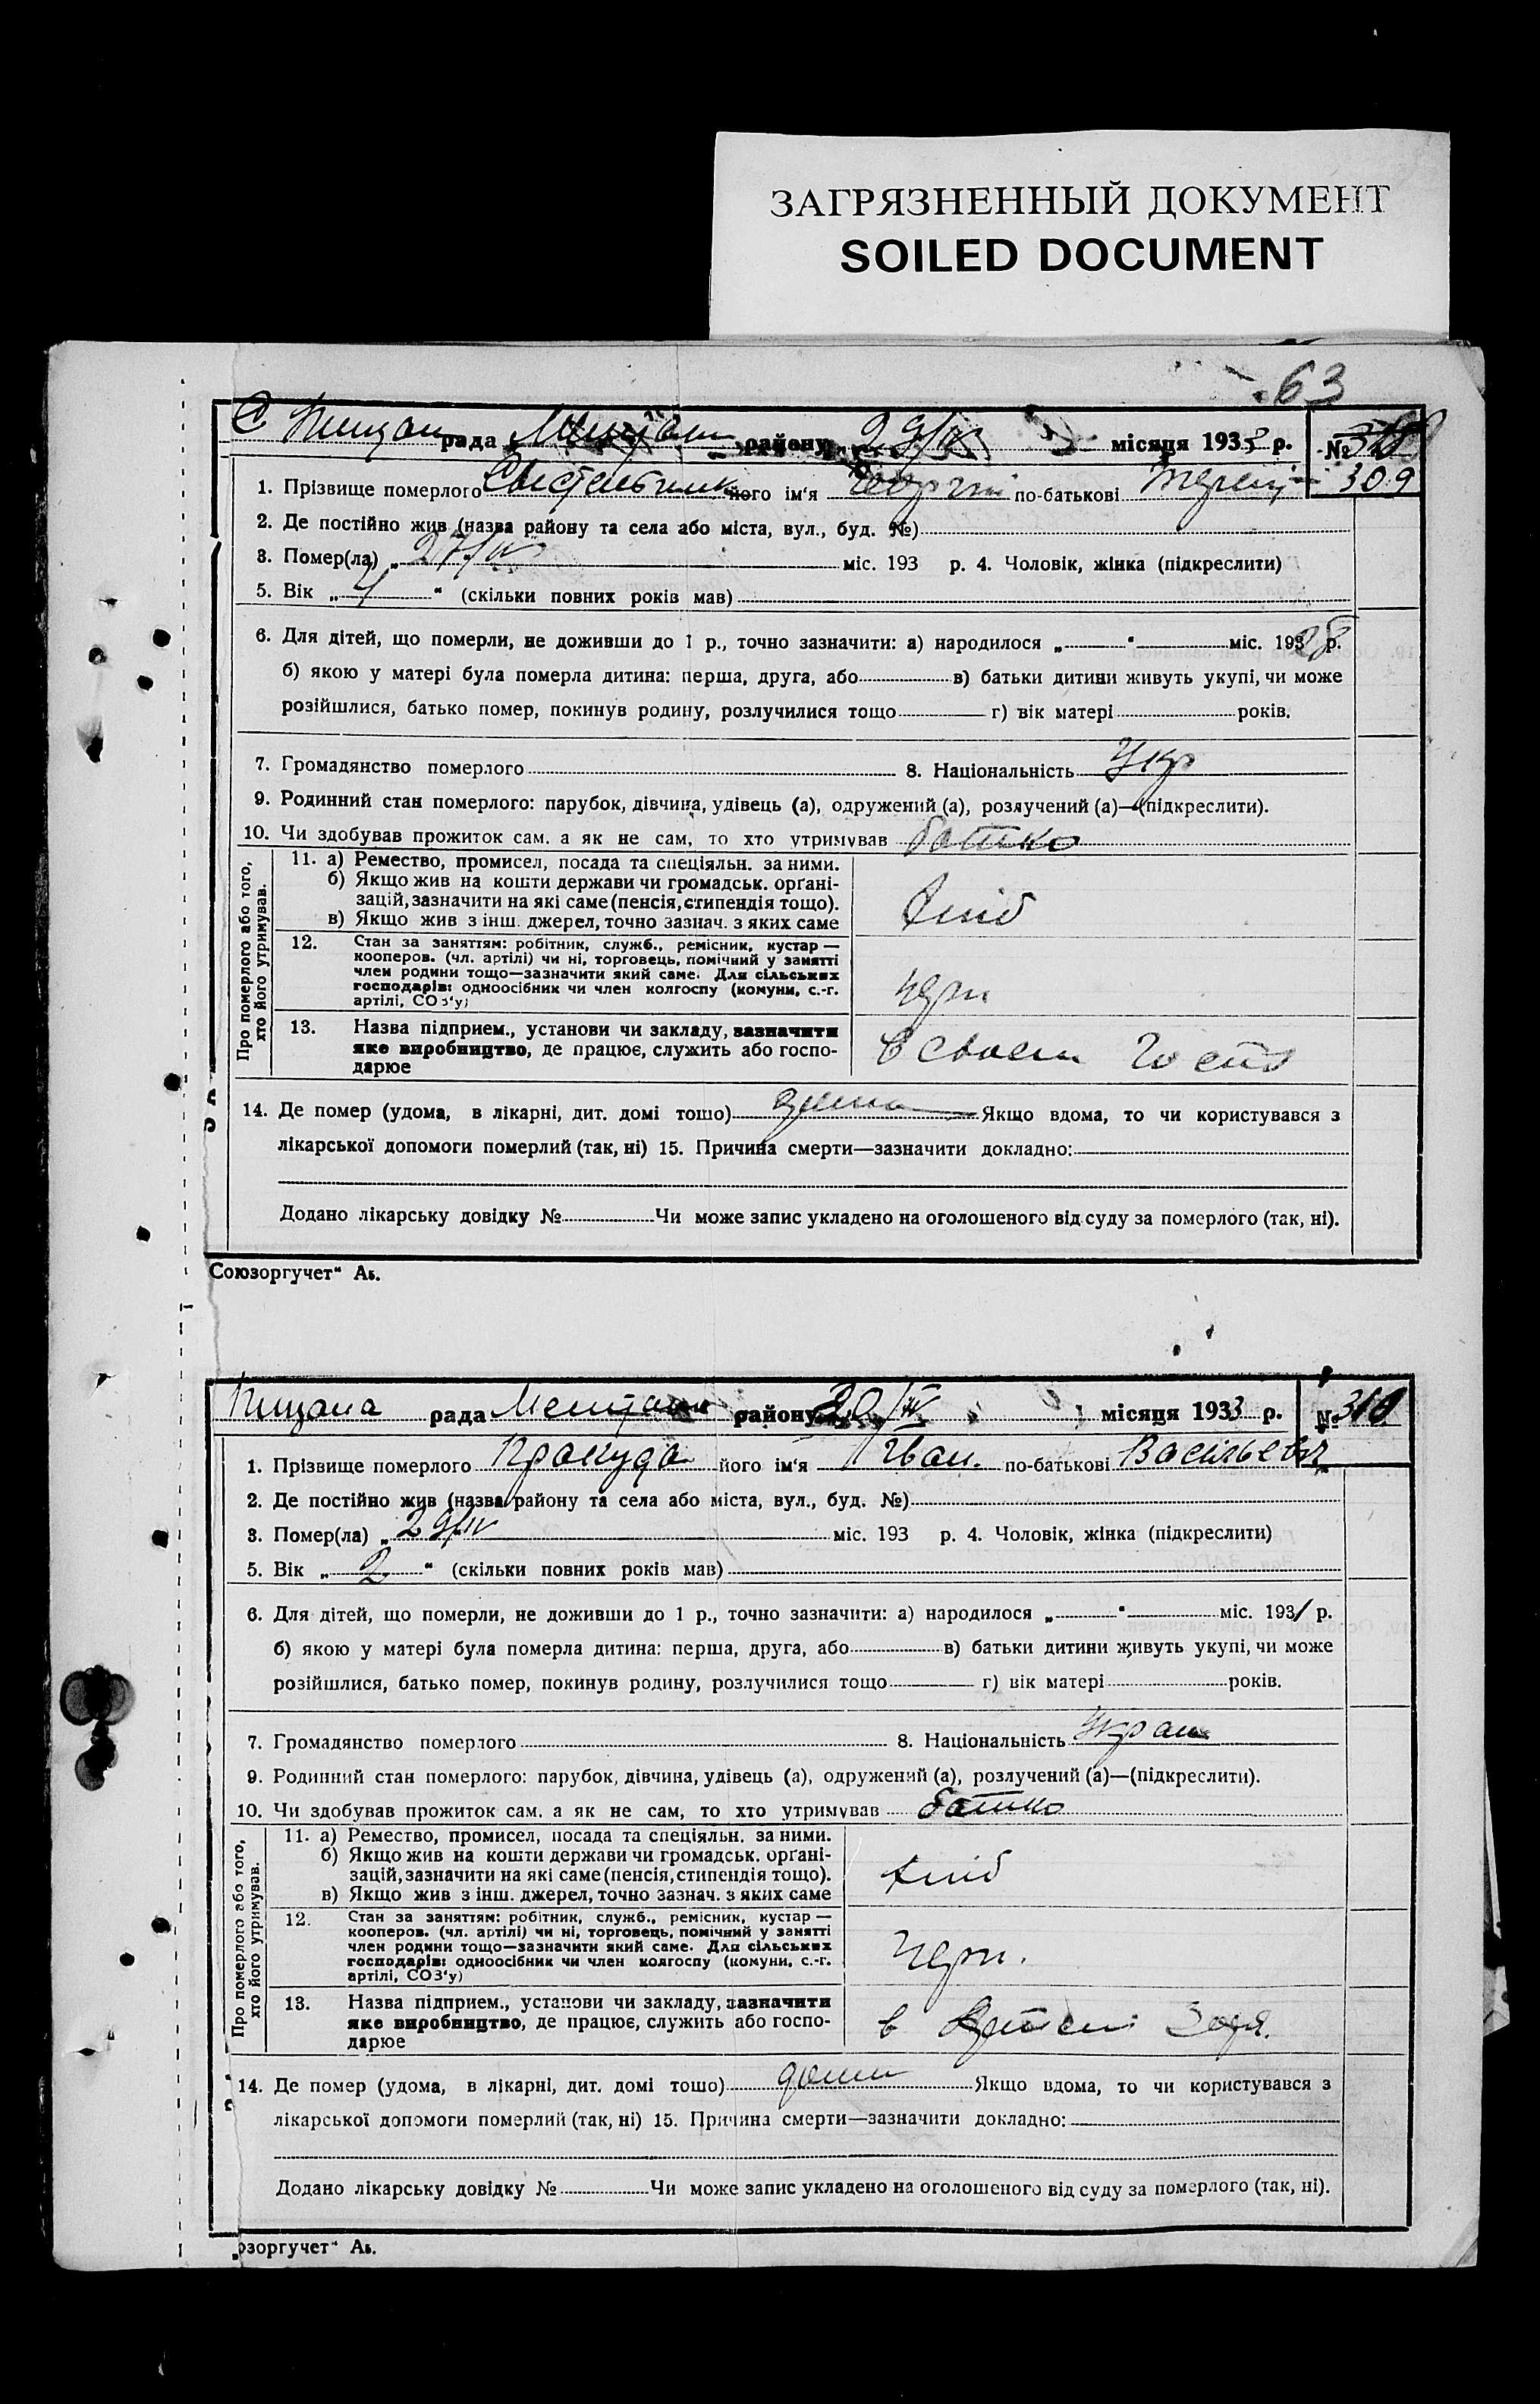 ЗАГРЯЗНЕННЫЙ ДОКУМЕНТ
SOILED DOCUMENT
63
рада району 29/IV місяця 1933 р. №
309
1. Прізвище померлого його ім'я Георгій по-батькові
2. Де постійно жив (назва району та села або міста, вул., буд. №)
3. Помер(ла) „ 27/IV міс. 193 р. 4. Чоловік, жінка (підкреслити)
5. Вік „ 4 “ (скільки повних років мав)
6. Для дітей, що померли, не доживши до 1 р., точно зазначити: а) народилося „ “ міс. 1928 р.
б) якою у матері була померла дитина: перша, друга, або в) батьки дитини живуть укупі, чи може
розійшлися, батько помер, покинув родину, розлучилися тощо г) вік матері років.
7. Громадянство померлого 8. Національність Укр
9. Родинний стан померлого: парубок, дівчина, удівець (а), одружений (а), розлучений (а)—(підкреслити).
10. Чи здобував прожиток сам, а як не сам, то хто утримував батько
Про померлого або того, хто його утримував.
11. а) Ремество, промисел, посада та спеціяльн. за ними.
б) Якщо жив на кошти держави чи громадськ. орґані-
зацій, зазначити на які саме (пенсія, стипендія тощо).
в) Якщо жив з інш. джерел, точно зазнач. з яких саме
хліб
12. Стан за заняттям: робітник, служб., ремісник, кустар—
кооперов. (чл. артілі) чи ні, торговець, помічний у занятті
член родини тощо—зазначити який саме. Для сільських
господарів: одноосібник чи член колгоспу (комуни, с.-г.
артілі, СОЗ'у)
13. Назва підприєм., установи чи закладу, зазначити
яке виробництво, де працює, служить або госпо-
дарює
в своем
14. Де помер (удома, в лікарні, дит. домі тощо) дома Якщо вдома, то чи користувався з
лікарської допомоги померлий (так, ні) 15. Причина смерти—зазначити докладно:
Додано лікарську довідку № Чи може запис укладено на оголошеного від суду за померлого (так, ні).
Союзоргучет“ Аь.
Пищана рада району 30/IV місяця 1933 р. № 310
1. Прізвище померлого Пракуда його ім'я Іван. по-батькові Васільевич
2. Де постійно жив (назва району та села або міста, вул., буд. №)
3. Помер(ла) „ 29/IV міс. 193 р. 4. Чоловік, жінка (підкреслити)
5. Вік „ 2 “ (скільки повних років мав)
6. Для дітей, що померли, не доживши до 1 р., точно зазначити: а) народилося „ “ міс. 1931 р.
б) якою у матері була померла дитина: перша, друга, або в) батьки дитини живуть укупі, чи може
розійшлися, батько помер, покинув родину, розлучилися тощо г) вік матері років.
7. Громадянство померлого 8. Національність Украин
9. Родинний стан померлого: парубок, дівчина, удівець (а), одружений (а), розлучений (а)—(підкреслити).
10. Чи здобував прожиток сам, а як не сам, то хто утримував батько
Про померлого або того, хто його утримував.
11. а) Ремество, промисел, посада та спеціяльн. за ними.
б) Якщо жив на кошти держави чи громадськ. орґані-
зацій, зазначити на які саме (пенсія, стипендія тощо).
в) Якщо жив з інш. джерел, точно зазнач. з яких саме
хліб
12. Стан за заняттям: робітник, служб., ремісник, кустар—
кооперов. (чл. артілі) чи ні, торговець, помічний у занятті
член родини тощо—зазначити який саме. Для сільських
господарів: одноосібник чи член колгоспу (комуни, с.-г.
артілі, СОЗ'у)
13. Назва підприєм., установи чи закладу, зазначити
яке виробництво, де працює, служить або госпо-
дарює
в Зоря.
14. Де помер (удома, в лікарні, дит. домі тощо) дома Якщо вдома, то чи користувався з
лікарської допомоги померлий (так, ні) 15. Причина смерти—зазначити докладно:
Додано лікарську довідку № Чи може запис укладено на оголошеного від суду за померлого (так, ні).
„озоргучет“ Аь.